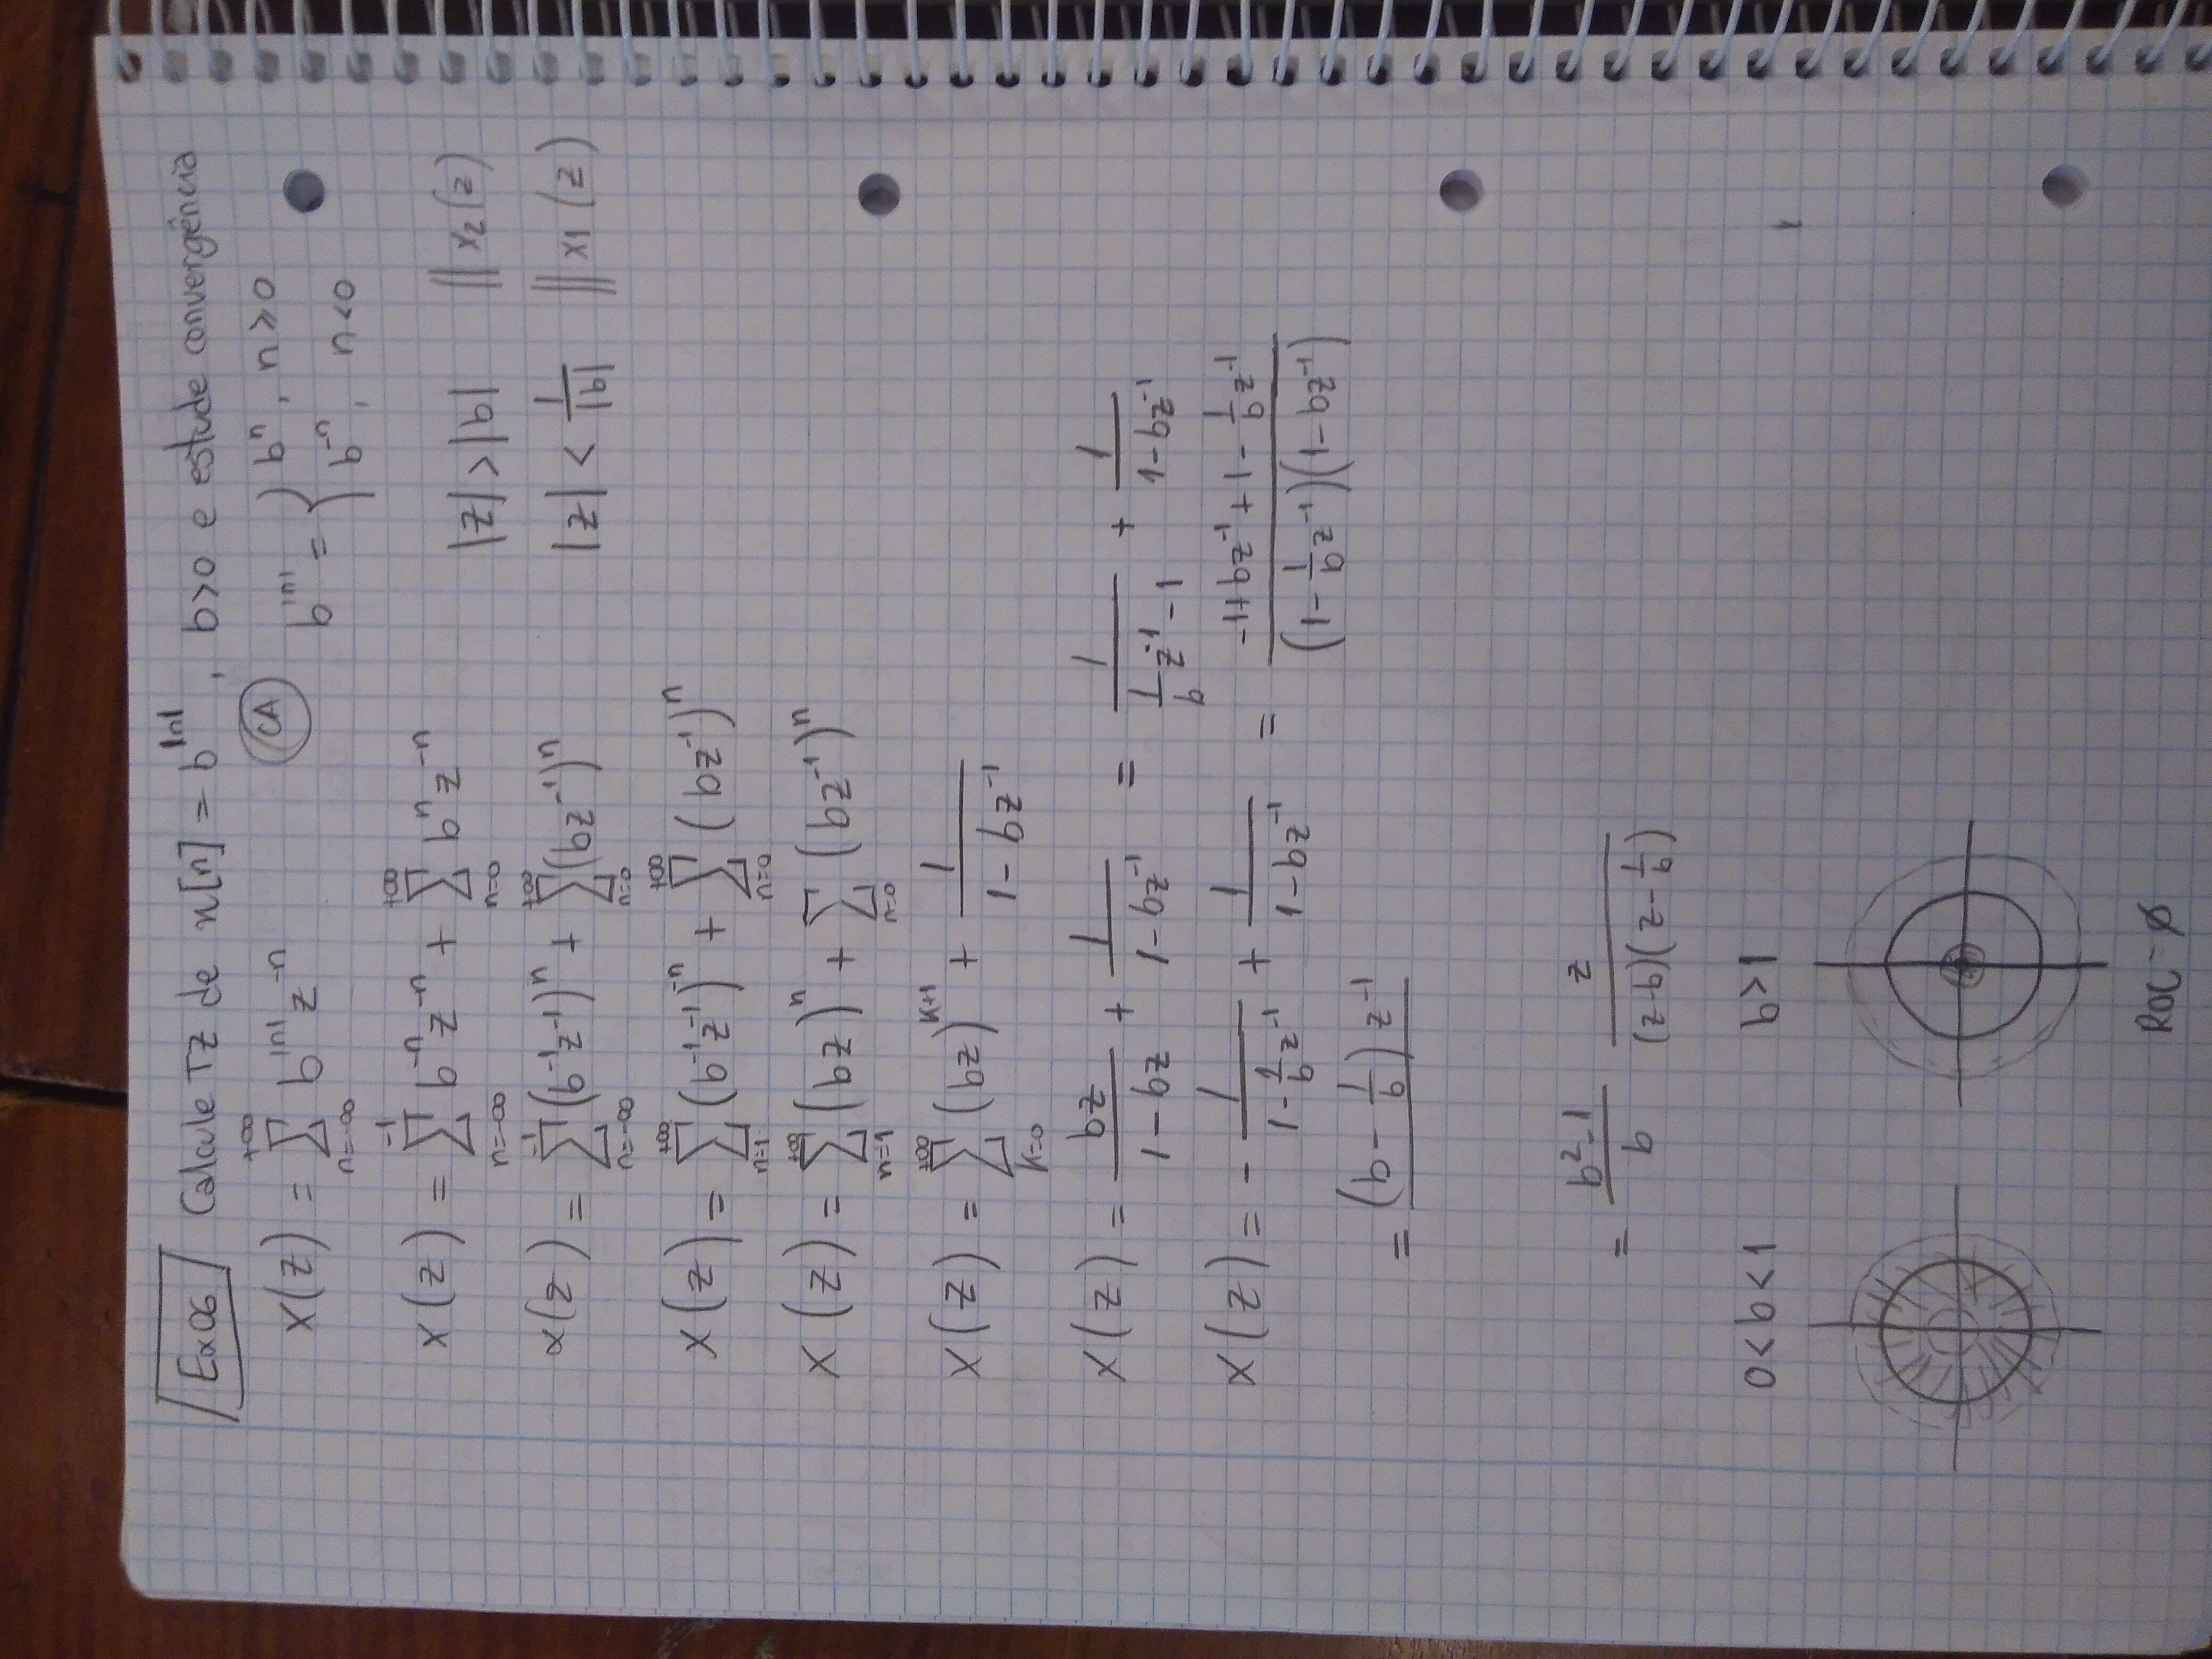 Ex06 Calcule TZ de x[n] = b^|n| , b>0 e estude convergência
X(z) = ∑_{n=-∞}^{+∞} b^|n| z^-n
CA b^|n| = { b^n , n ≥ 0
b^-n , n<0
X(z) = ∑_{n=-∞}^{-1} b^-n z^-n + ∑_{n=0}^{+∞} b^n z^-n
|z| > |b| || X2(z)
X(z) = ∑_{n=-∞}^{-1} (b^-1 z^-1)^n + ∑_{n=0}^{+∞} (bz^-1)^n
|z| < 1/|b| || X1(z)
X(z) = ∑_{n=1}^{+∞} (b^-1 z^-1)^-n + ∑_{n=0}^{+∞} (bz^-1)^n
X(z) = ∑_{n=1}^{+∞} (bz)^n + ∑_{n=0} (bz^-1)^n
X(z) = ∑_{k=0}^{+∞} (bz)^{k+1} + 1/(1-bz^-1)
X(z) = bz/(1-bz) + 1/(1-bz^-1) = 1/(1/b z^-1 - 1) + 1/(1-bz^-1)
X(z) = - 1/(1 - 1/b z^-1) + 1/(1-bz^-1) = (-1+bz^-1+1-1/b z^-1)/((1-1/b z^-1)(1-bz^-1))
= (b - 1/b) z^-1
= (b²-1)/b z/((z-b)(z-1/b))
0<b<1 b>1
ROC = ∅